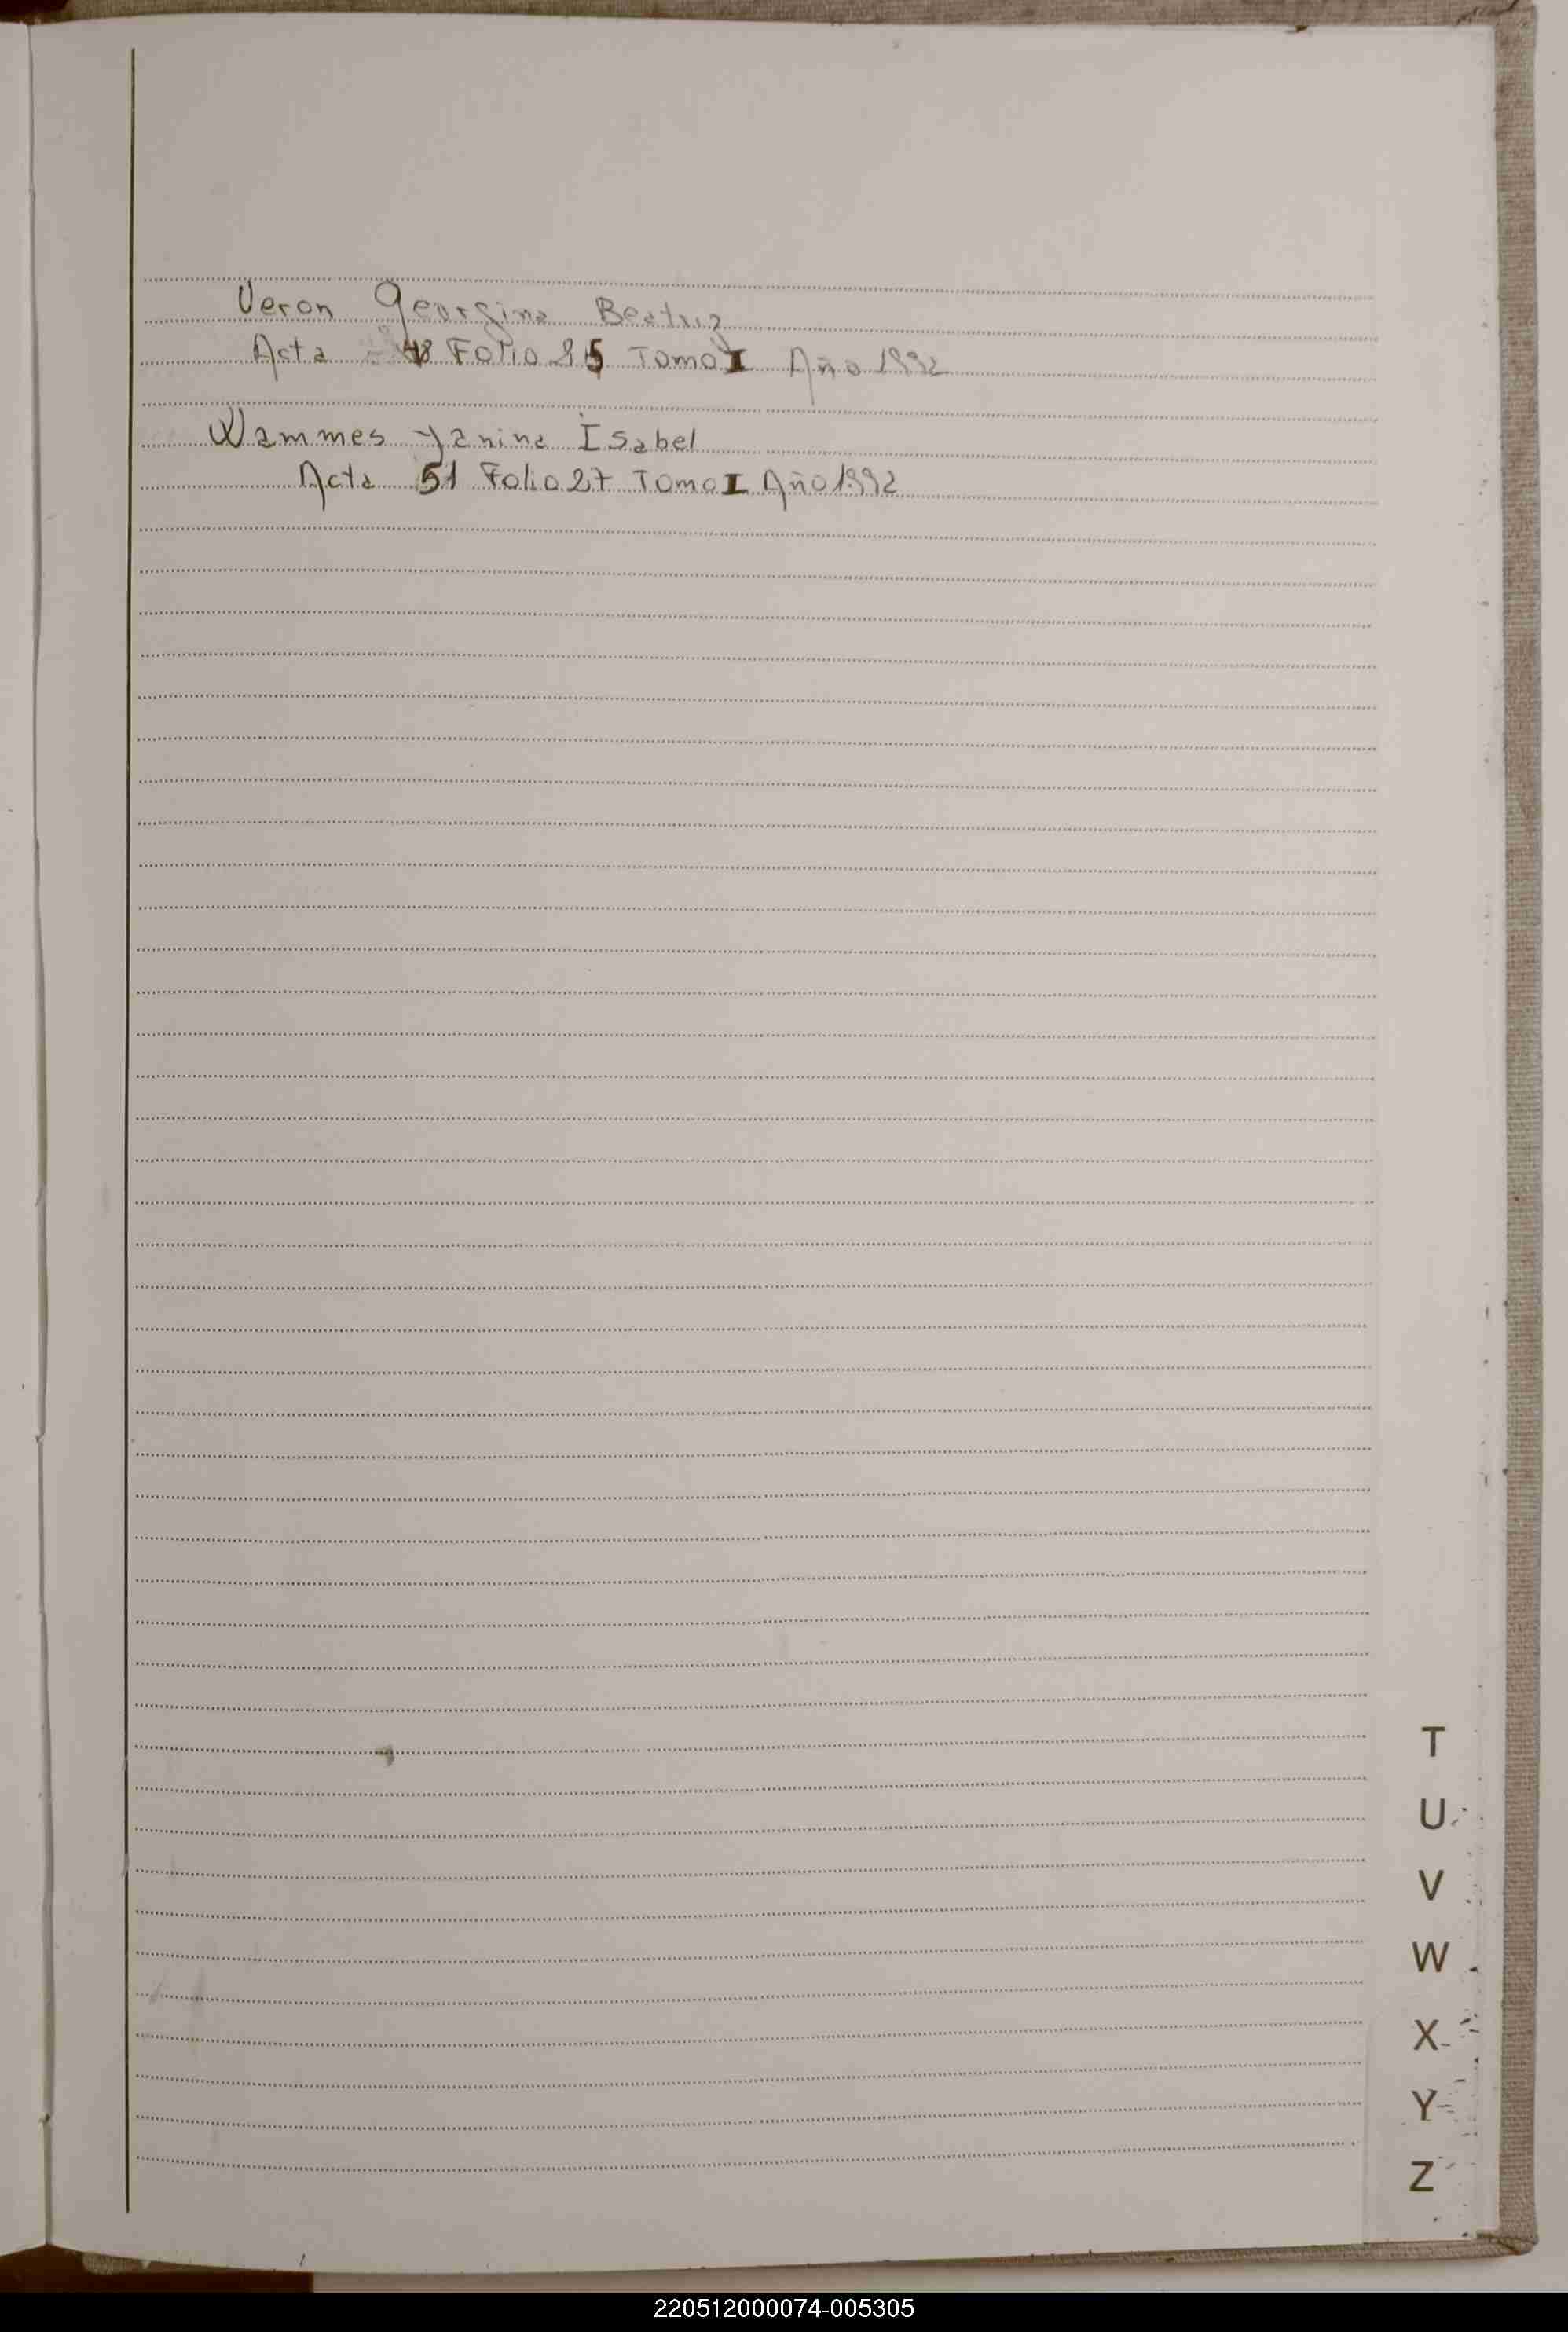 Veron Georgina Beatriz
Acta 48 Folio 25 Tomo I Año 1992
Wammes Yanina Isabel
Acta 51 Folio 27 Tomo I Año 1992
T
U
V
W
X
Y
Z
220512000074-005305